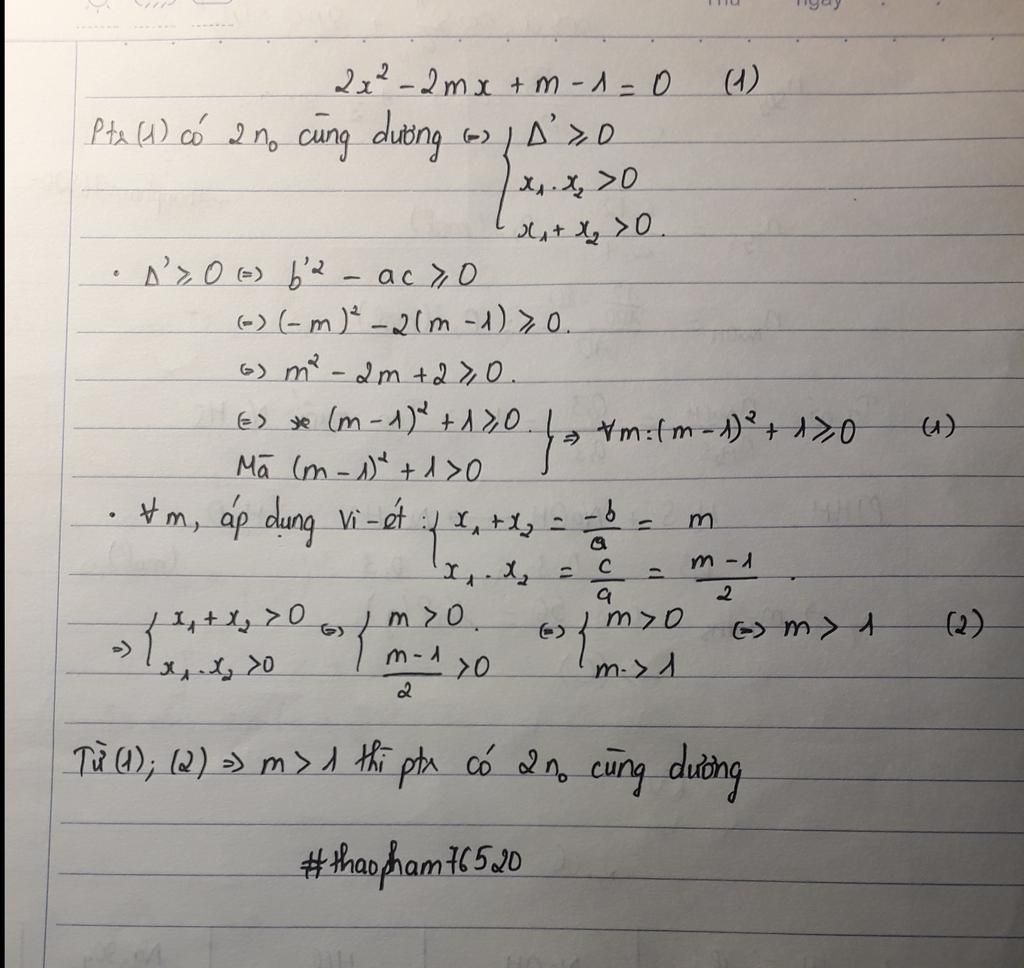 Thứ ngày
2x² - 2mx + m - 1 = 0 (1)
Ptr (1) có 2 n₀ cùng dương ⇔ { Δ' ≥ 0
x₁ . x₂ > 0
x₁ + x₂ > 0.
• Δ' ≥ 0 ⇔ b'² - ac ≥ 0
⇔ (-m)² - 2(m - 1) ≥ 0.
⇔ m² - 2m + 2 ≥ 0.
⇔ (m - 1)² + 1 ≥ 0. } ⇒ ∀m: (m - 1)² + 1 ≥ 0 (1)
Mà (m - 1)² + 1 > 0
• ∀m, áp dụng Vi-ét: { x₁ + x₂ = -b/a = m
x₁ . x₂ = c/a = (m - 1)/2 .
⇒ { x₁ + x₂ > 0 ⇔ { m > 0. ⇔ { m > 0 ⇔ m > 1 (2)
x₁ . x₂ > 0 (m - 1)/2 > 0 m > 1
Từ (1); (2) ⇒ m > 1 thì ptr có 2 n₀ cùng dương
#thaopham76520